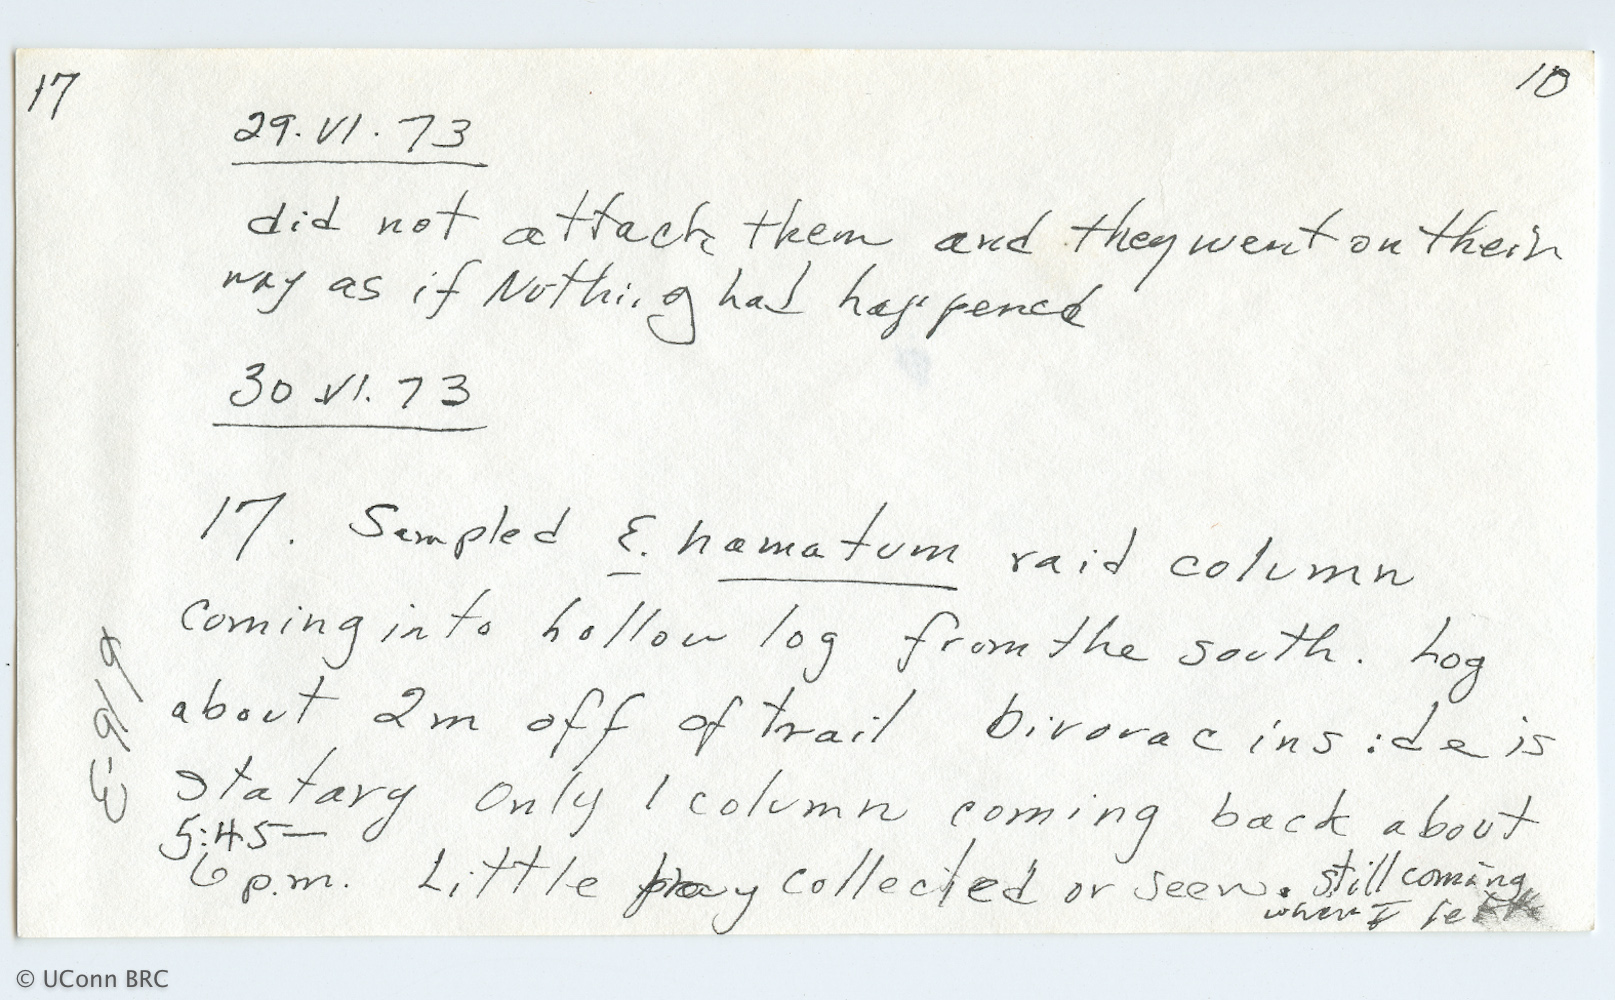 17
10
29.VI.73
did not attack them and they went on their
way as if Nothing had happened
30.VI.73
17. Sampled E. hamatum raid column
coming into hollow log from the south. Log
about 2m off of trail bivouac inside is
statary Only 1 column coming back about
5:45—
6 p.m. Little prey collected or seen. still coming
when I left
© UConn BRC